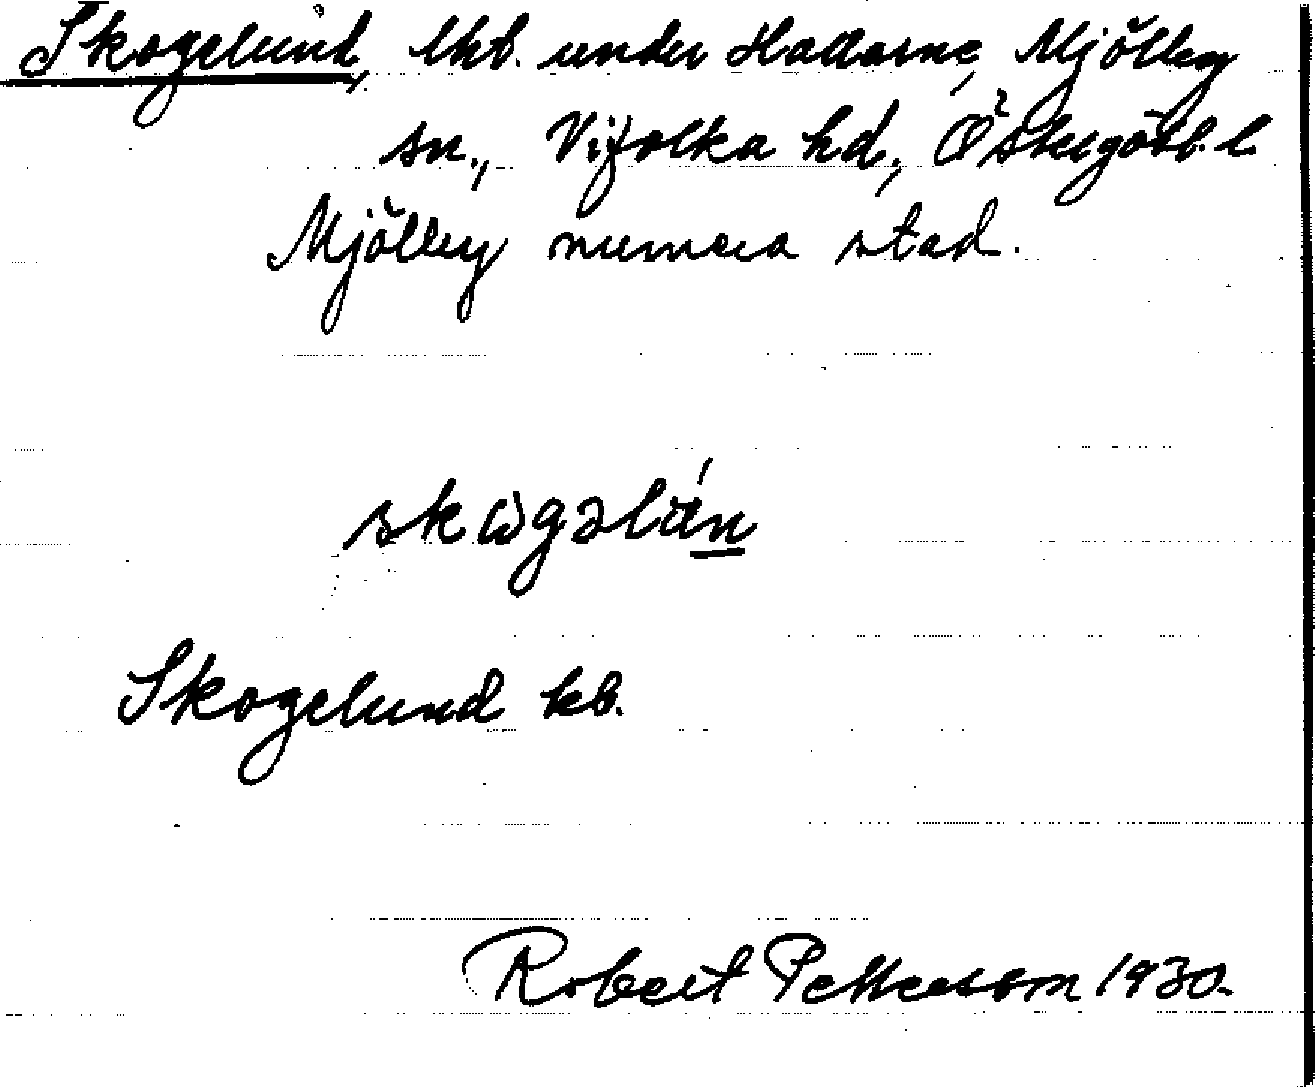 Skogelund, lht. under Hallarne, Mjölby
sn., Vifolka hd, Östergötl. l.
Mjölby numera stad.
skωgəlún
Skogelund kb.
Robert Pettersson 1930.